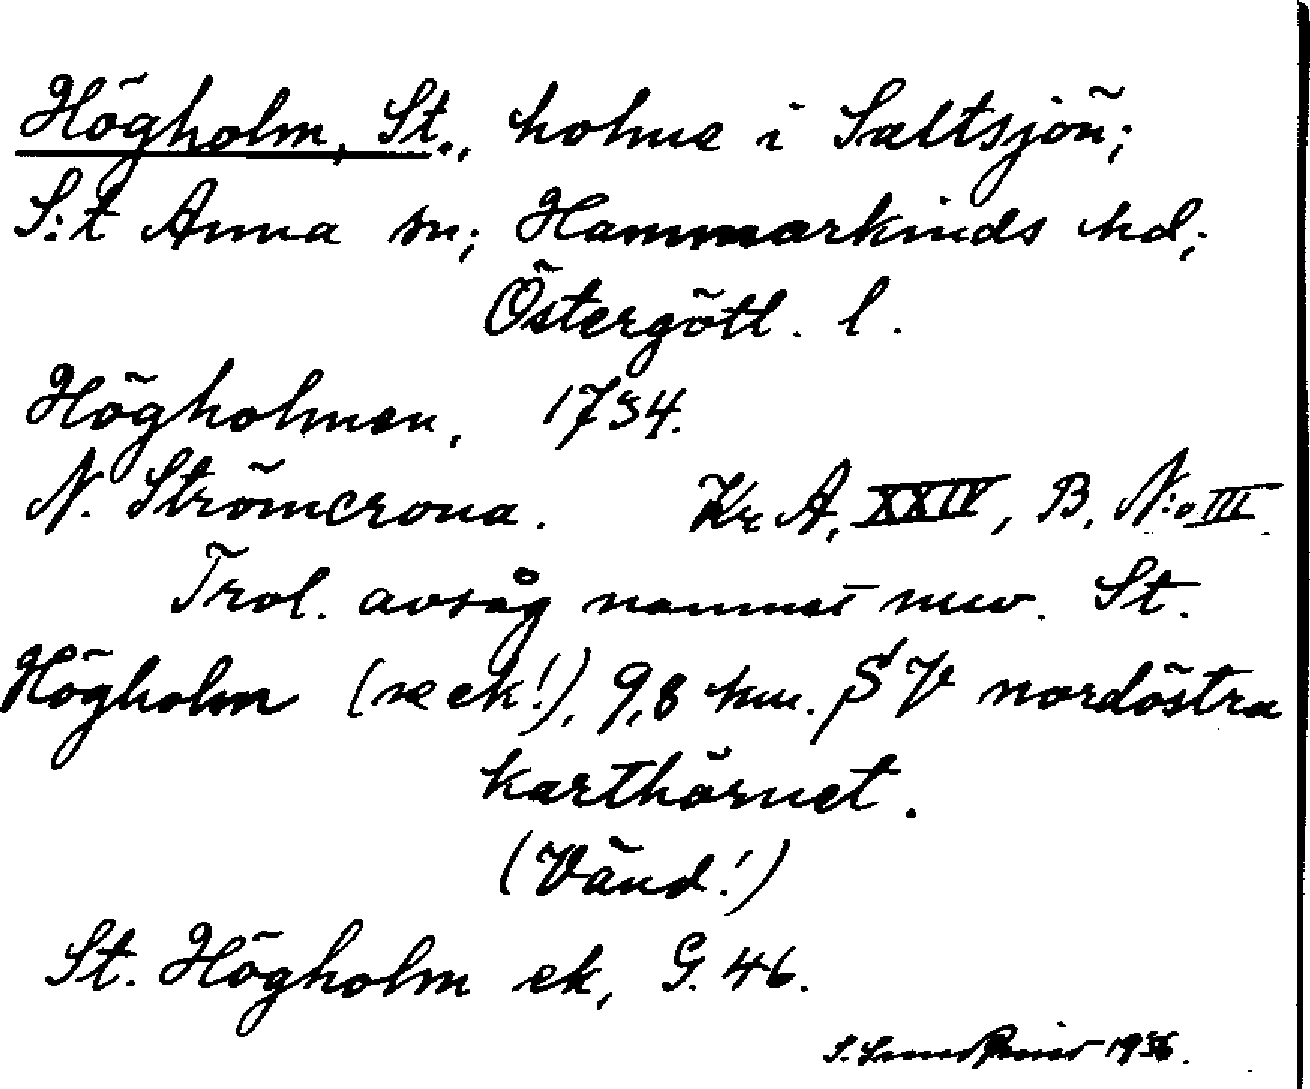 Högholm, St., holme i Saltsjön;
S:t Anna sn; Hammarkinds hd;
Östergötl. l.
Högholmen, 1734.
N. Strömcrona. Kr. A, XXIV, B. N:o III
Trol. avsåg namnet nuv. St.
Högholm (se ek!), 9,8 km. SV nordöstra
karthörnet.
(Vänd!)
St. Högholm ek, G. 46.
1936.